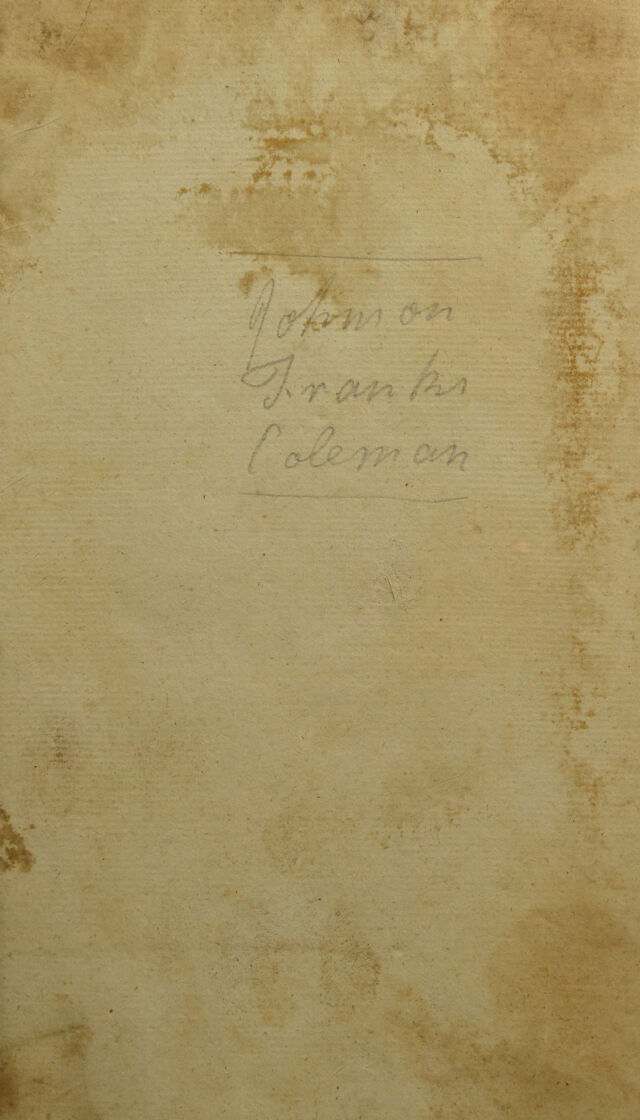 Johnson
Franks
Coleman